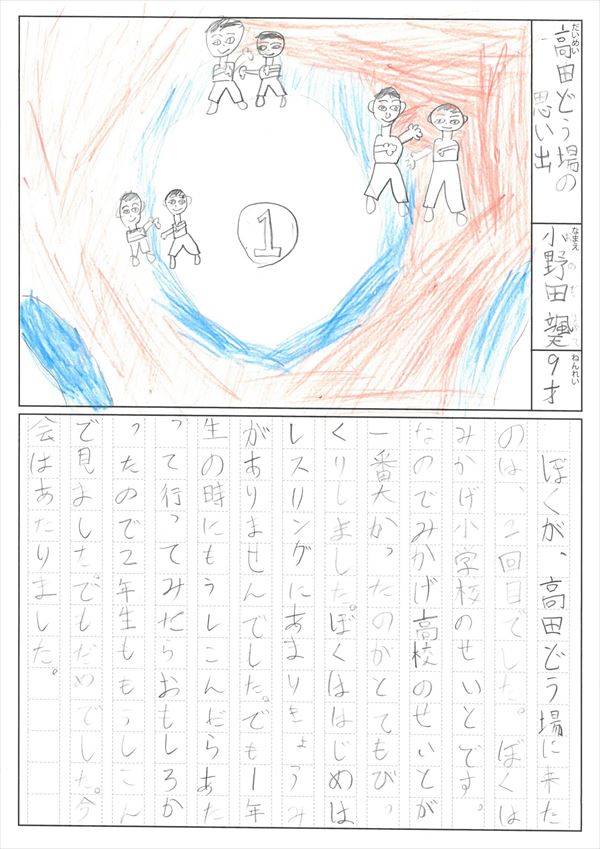 だいめい
高田どう場の
思い出
なまえ
小野田 颯
ねんれい
9才
1
ぼくが、高田どう場に来た
のは、2回目でした。ぼくは
みかげ小学校のせいとです。
なのでみかげ高校のせいとが
一番大かったのかとてもびっ
くりしました。ぼくははじめは
レスリングにあまりきょうみ
がありませんでした。でも1年
生の時にもうしこんだらあた
って行ってみたらおもしろか
ったので2年生ももうしこん
で見ました。でもだめでした。今
会はあたりました。